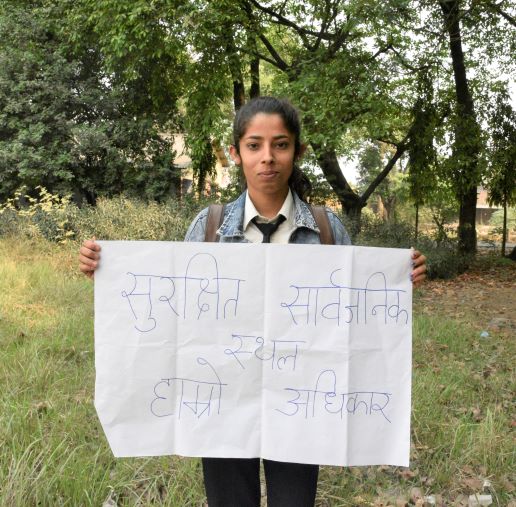 सुरक्षित सार्वजनिक
स्थल
हाम्रो अधिकार